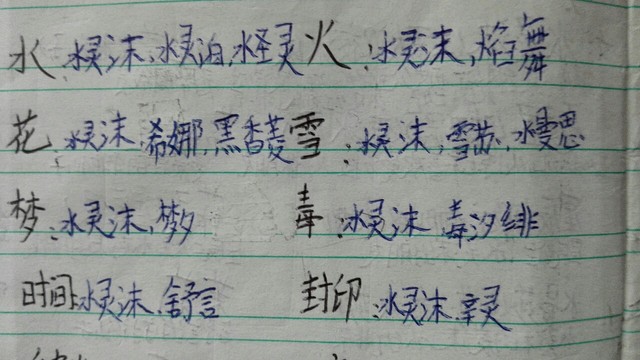 水:水灵沫,水灵泊,水圣灵 火:水灵沫,焰舞
花:水灵沫,希娜,黑香菱 雪:水灵沫,雪苏,水曼思
梦:水灵沫,梦 毒:水灵沫 毒汐绯
时间:水灵沫,舒言 封印:水灵沫.辛灵